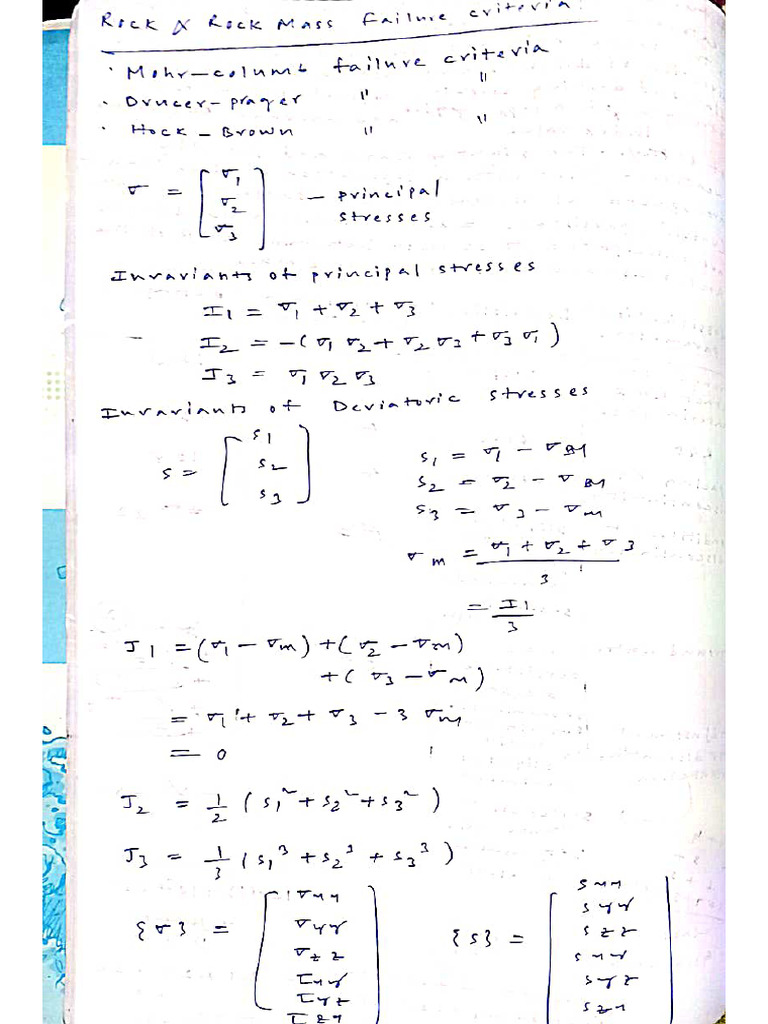 Rock & Rock Mass Failure criteria
· Mohr-columb failure criteria
· Drucer-prager " "
· Hock-Brown " "
σ = [σ1 σ2 σ3] - principal stresses
Invariants of principal stresses
I1 = σ1 + σ2 + σ3
I2 = -(σ1 σ2 + σ2 σ3 + σ3 σ1)
I3 = σ1 σ2 σ3
Invariants of Deviatoric stresses
s = [s1 s2 s3]
s1 = σ1 - σm
s2 = σ2 - σm
s3 = σ3 - σm
σm = (σ1 + σ2 + σ3)/3
= I1/3
J1 = (σ1 - σm) + (σ2 - σm)
+ (σ3 - σm)
= σ1 + σ2 + σ3 - 3 σm
= 0
J2 = 1/2 (s1² + s2² + s3²)
J3 = 1/3 (s1³ + s2³ + s3³)
{σ} = [σxx σyy σzz τxy τyz τzx]
{s} = [sxx syy szz sxy syz szx]